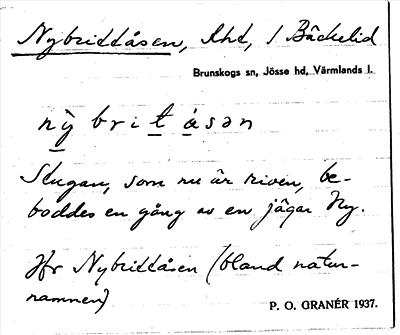 Nybrittåsen, lht, / Bäckelid
Brunskogs sn, Jösse hd, Värmlands l.
ny̆ b r i t å s ə n
Stugan, som nu är riven, be-
boddes en gång av en jägar Ny.
Jfr Nybrittåsen (bland natur-
namnen)
P. O. GRANÉR 1937.